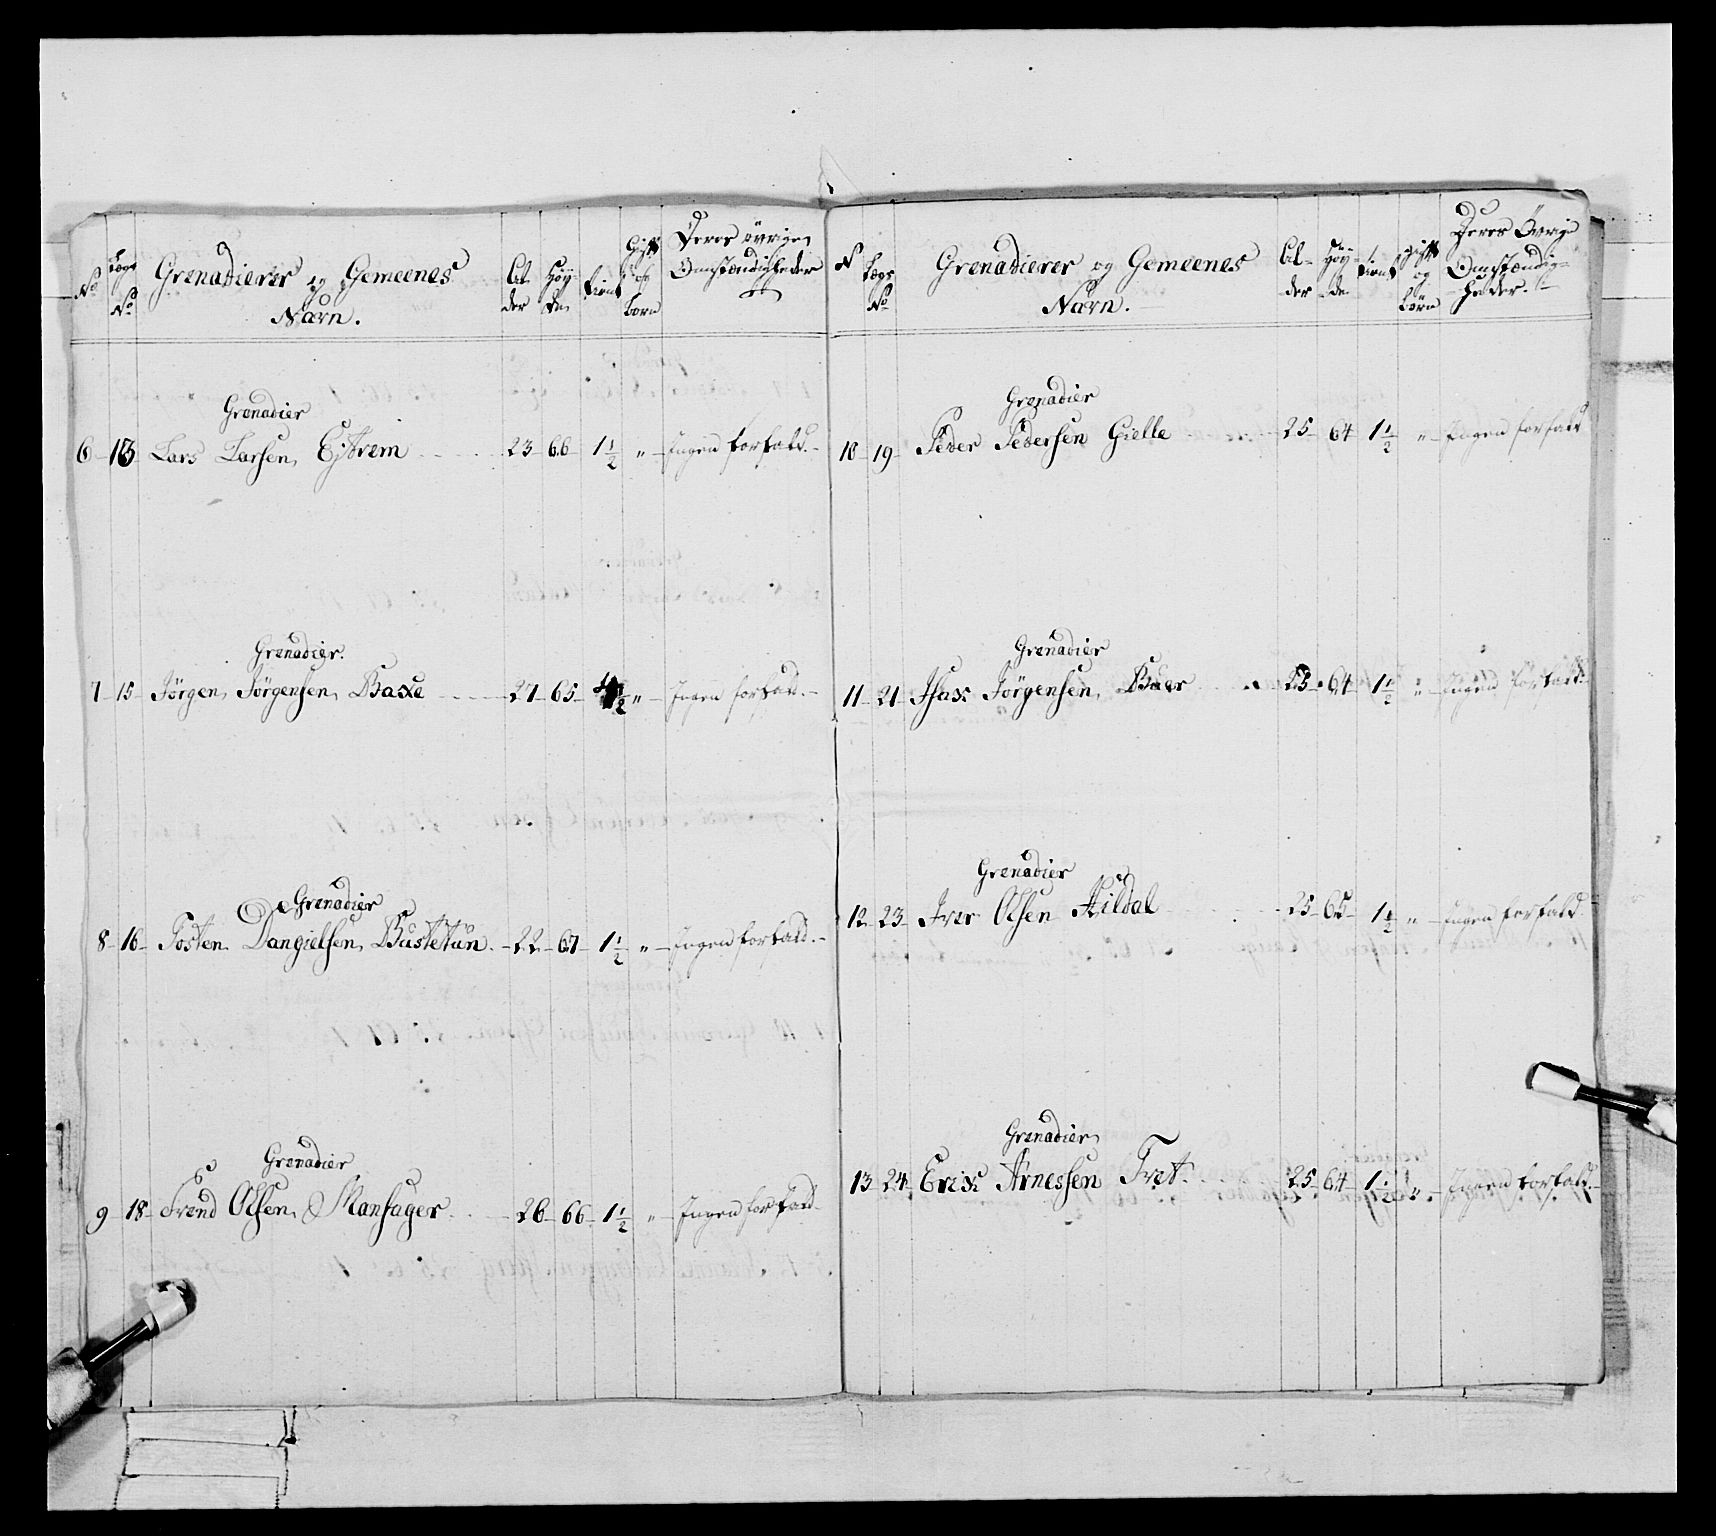 No Lægs No Grenadierer og Gemeenes Nafn. Al- der Höy- de tient Gift og born Deres övrige Omstændigheder
Grenadier
6 - 13 Lars Larsen Ejtrem 23 - 66 - 1 1/2 " - Ingen forfald. -
Grenadier.
7 - 15 - Jörgen Jörgensen Baxe 27 - 65 - 1/2 " - Ingen forfald. -
Grenadier
8 - 16 - Tosten Dangielsen Büstetün - 22 - 67 - 1 1/2 " - Ingen forfald. -
Grenadier
9 18 - Trond Olsen Mansager 26 - 66 - 1 1/2 " - Ingen forfald -
N Lægs No Grenadierer og Gemeenes Nafn. Al- der Höy- de tient gift og börn Deres Övrige Omstændig- heder.
Grenadier
10 - 19 - Peder Pedersen Gielle 25 - 64 1 1/2 " - Ingen forfald
Grenadier
11 - 21 - Isax Jörgensen Büer 25 - 64 - 1 1/2 " - Ingen forfald -
Grenadier
12 - 23 - Iver Olsen Hildal 25 - 65 - 1 1/2 " - Ingen forfald
Grenadier
13 - 24 - Erix Arnessen Tret 25 - 64 - 1 1/2 " - Ingen forfald -